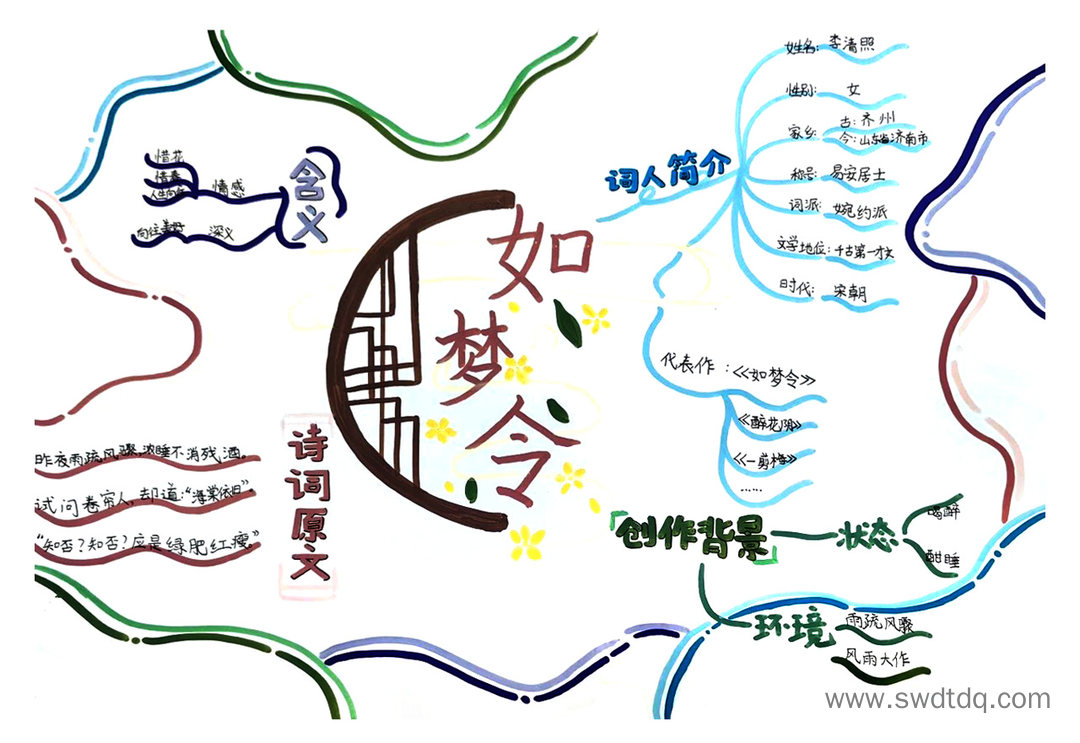 如梦令
词人简介
姓名: 李清照
性别: 女
家乡:
古: 齐州
今: 山东省济南市
称号: 易安居士
词派: 婉约派
文学地位: 千古第一才女
时代: 宋朝
代表作:《如梦令》
《醉花阴》
《一剪梅》
……
含义
情感
惜花
惜春
深义
向往美好
诗词原文
昨夜雨疏风骤,浓睡不消残酒。
试问卷帘人,却道:“海棠依旧”。
“知否?知否?应是绿肥红瘦”
「创作背景」
状态
喝醉
酣睡
环境
雨疏风骤
风雨大作
www.swdtdq.com